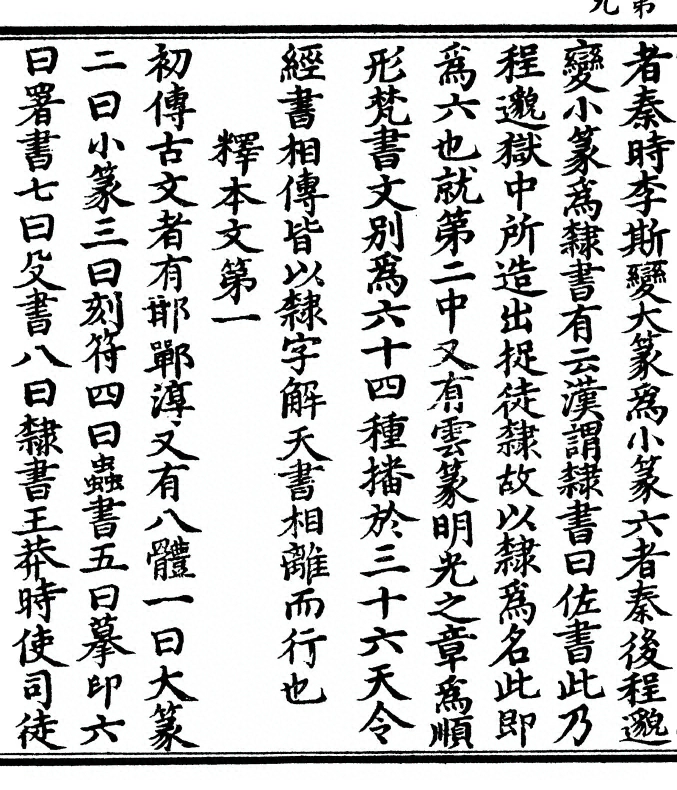 者秦時李斯變大篆爲小篆六者秦後程邈
變小篆爲隸書有云漢謂隸書曰佐書此乃
程邈獄中所造出捉徒隸故以隸爲名此即
爲六也就第二中又有雲篆明光之章爲順
形梵書文別爲六十四種播於三十六天今
經書相傳皆以隸字解天書相離而行也
釋本文第一
初傳古文者有邯鄲淳又有八體一曰大篆
二曰小篆三曰刻符四曰蟲書五曰摹印六
曰署書七曰殳書八曰隸書王莽時使司徒